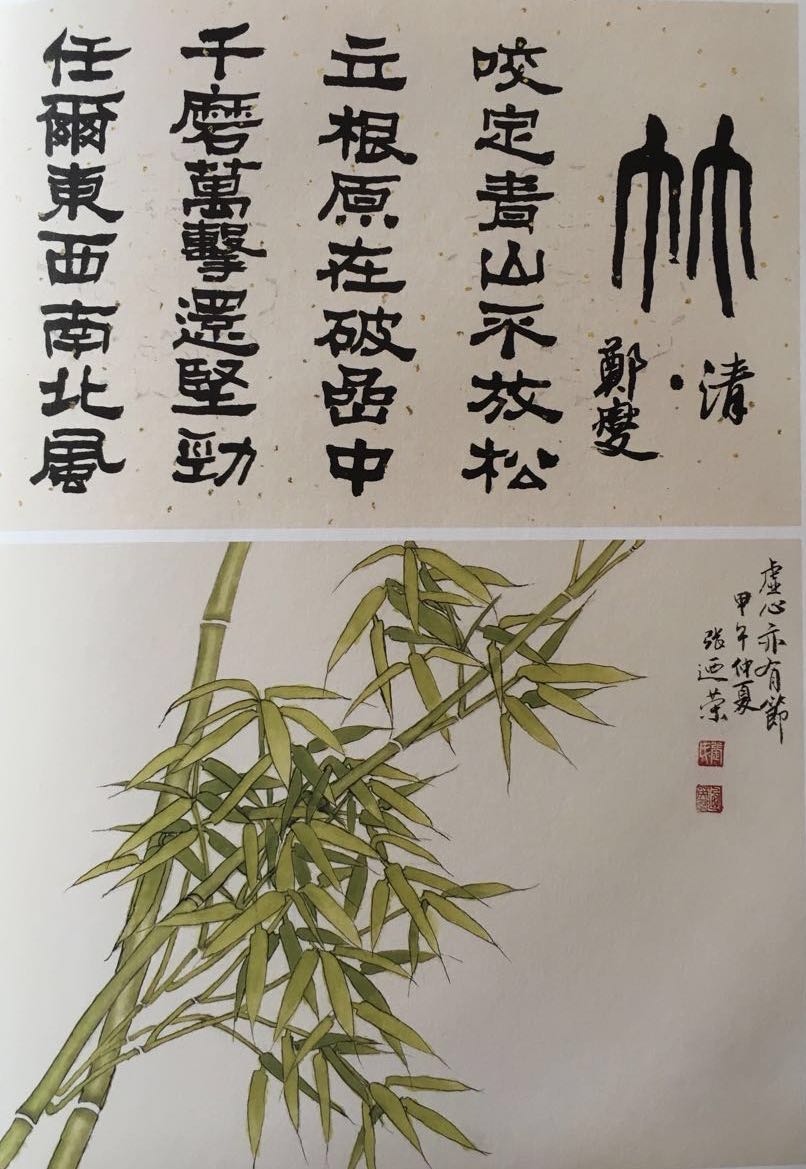 竹
清·
鄭燮
咬定青山不放松
立根原在破嵒中
千磨萬擊還堅勁
任爾東西南北風
虛心亦有節
甲午仲夏
张迺荣